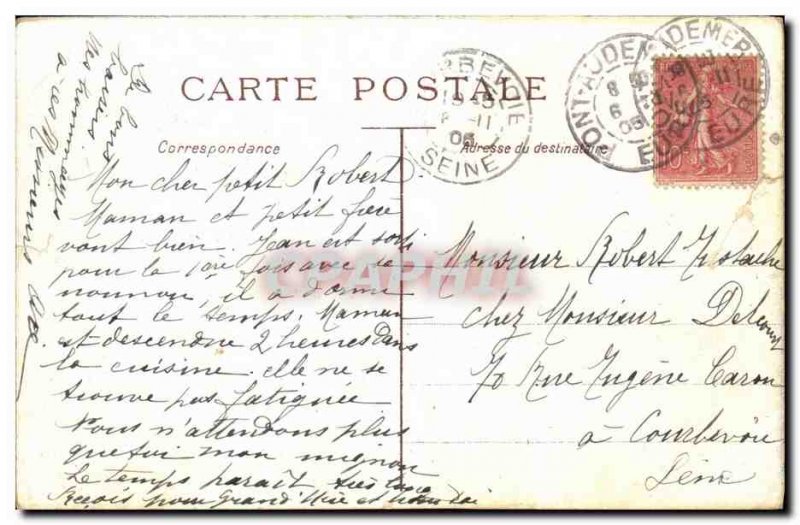 CARTE POSTALE
Correspondance
Adresse du destinataire
Mon cher petit Robert
Maman et petit frère
vont bien. Jean est sorti
pour la 1ère fois avec sa
nounou, il a dormi
tout le temps. Maman
est descendue 2 heures dans
la cuisine. elle ne se
trouve pas fatiguée
Nous n'attendons plus
que toi mon mignon
Le temps parait
Reçois pour Grand' Mère et
Monsieur Robert
chez Monsieur Delcourt
70 Rue Eugène Caron
à Courbevoie
Seine
baisers
Mes hommages
à vos
PONT-AUDEMER
EURE
8
6
05
PONT-AUDEMER
11
EURE
11
05
SEINE
CPAPHIL